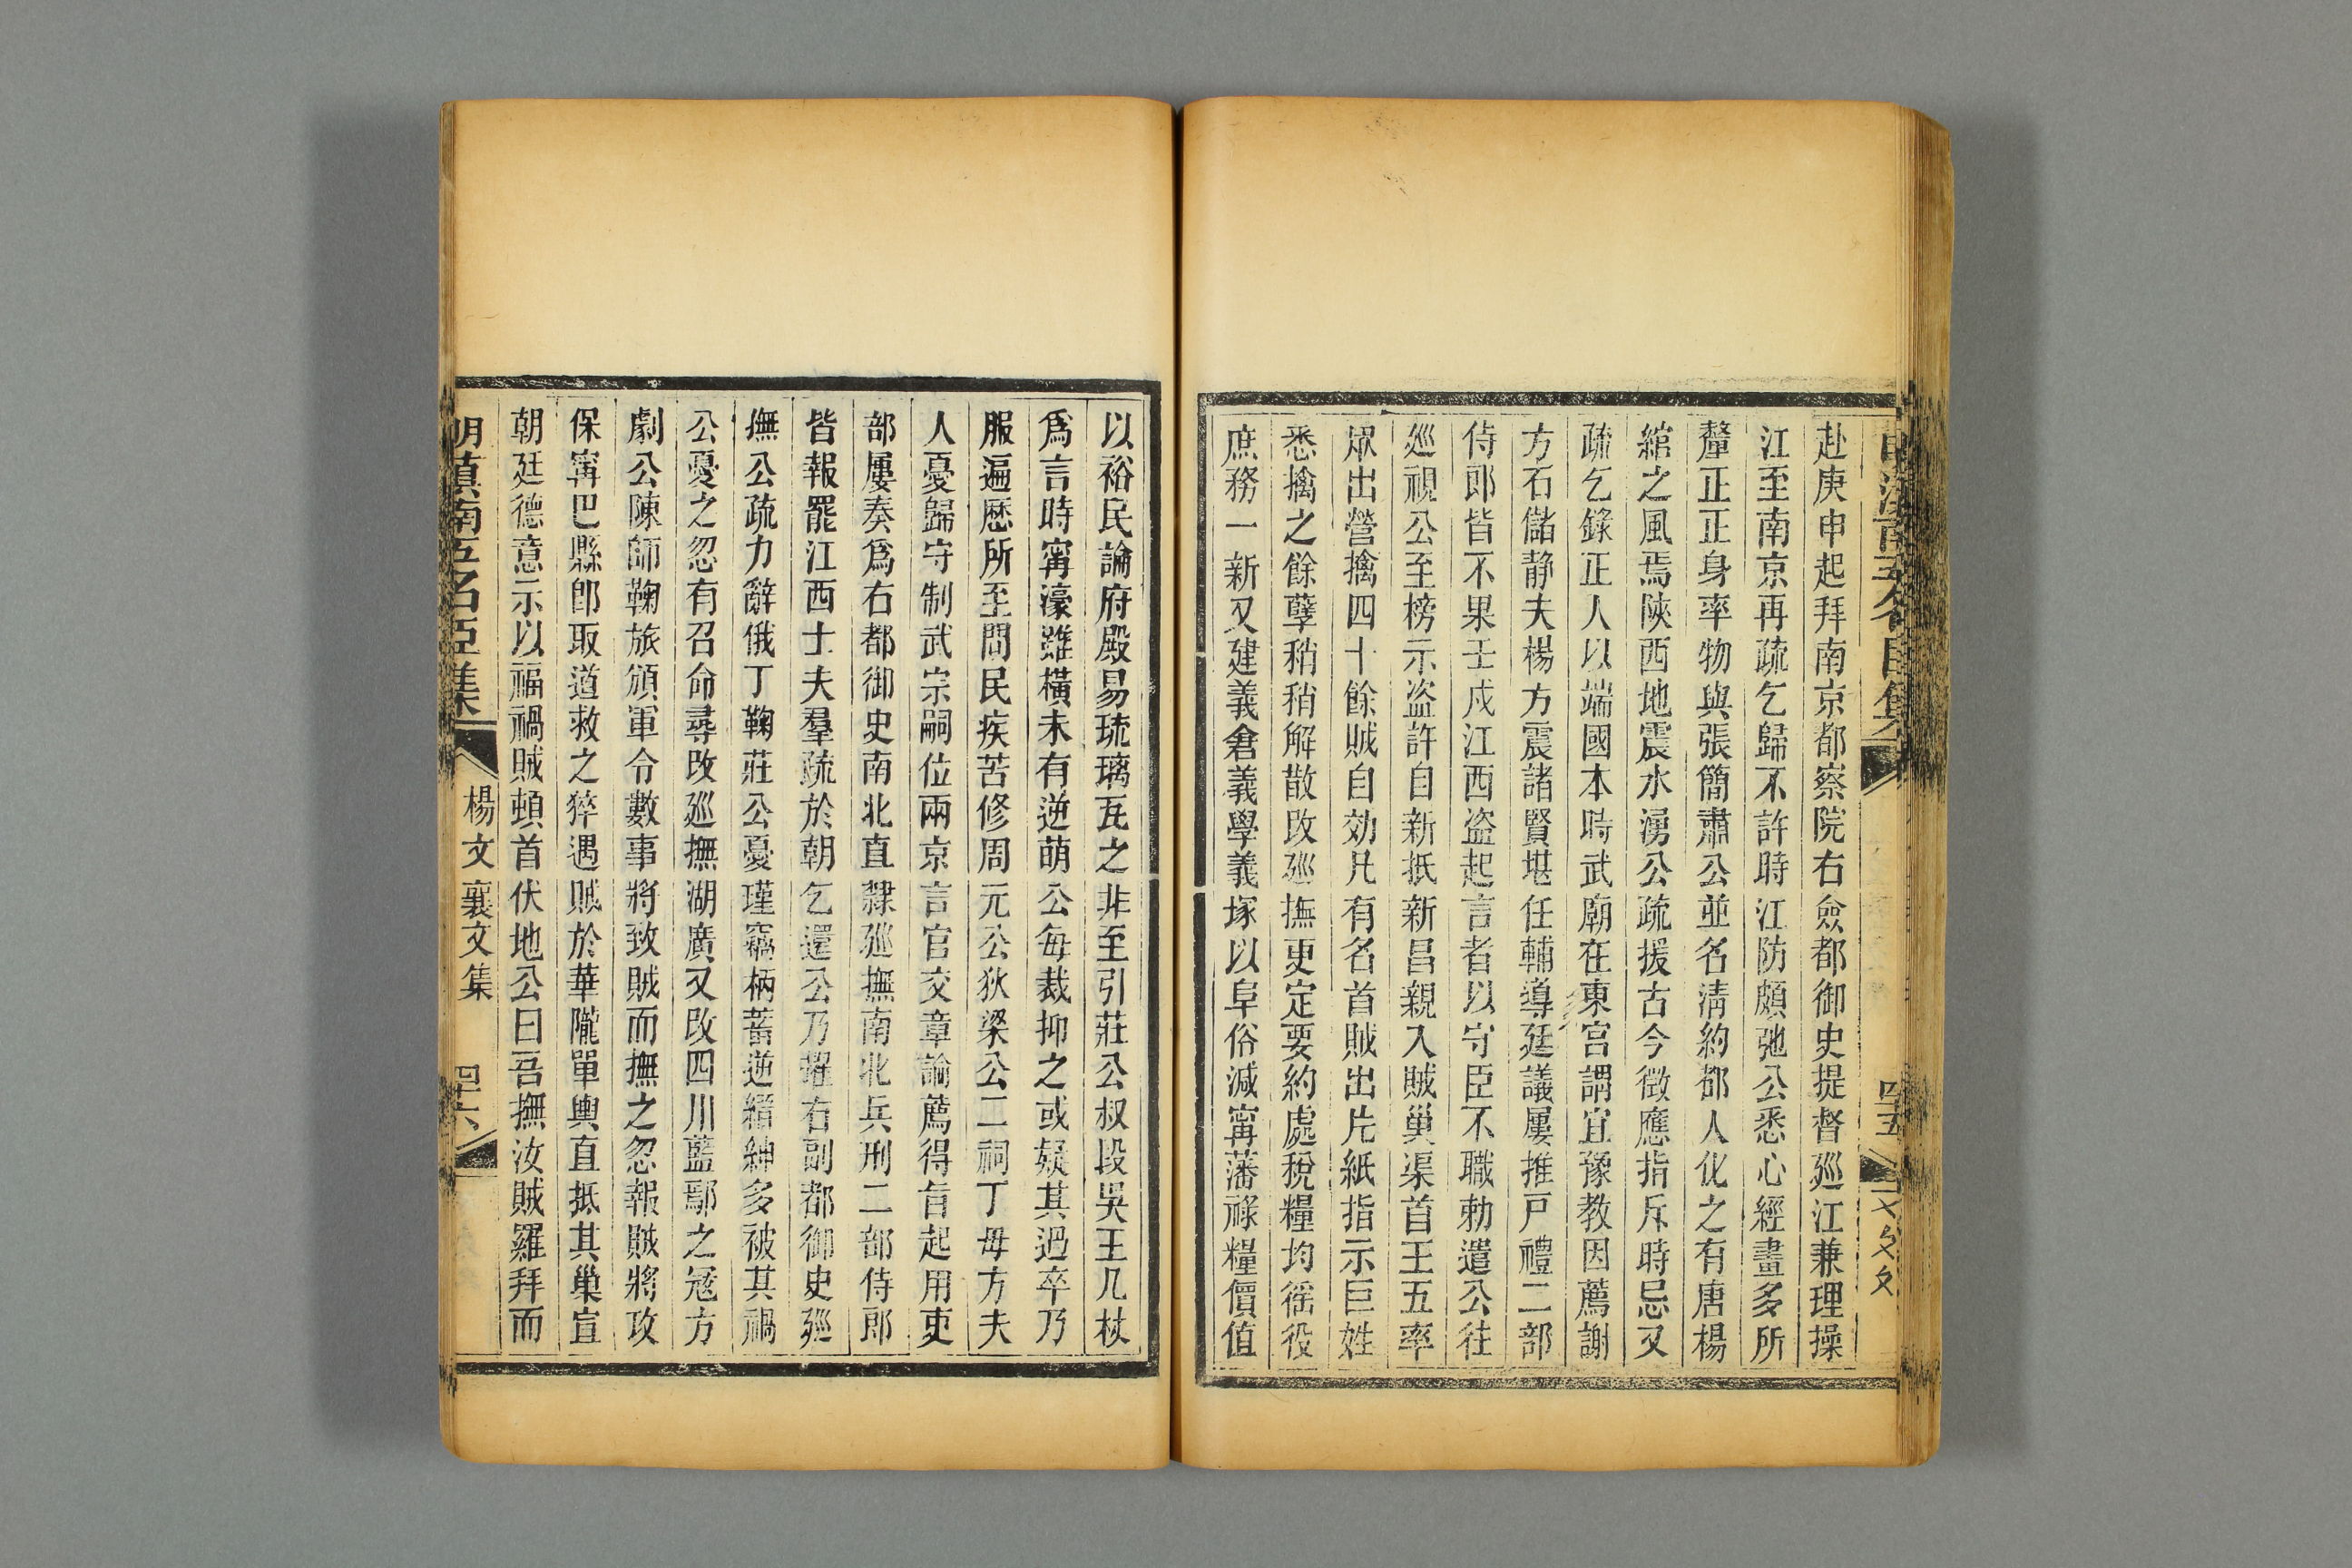 赴庚申起拜南京都察院右僉都御史提督廵江兼理操
江至南京再疏乞歸不許時江防頗弛公悉心經畫多所
釐正正身率物與張簡肅公並名淸約都人化之有唐楊
綰之風焉陝西地震水湧公疏援古今徵應指斥時忌又
疏乞錄正人以端國本時武廟在東宮謂宜豫教因薦謝
方石儲静夫楊方震諸賢堪任輔導廷議屢推戸禮二部
侍郎皆不果壬戌江西盗起言者以守臣不職勅遣公往
廵視公至榜示盗許自新抵新昌親入賊巢渠首王五率
眾出營擒四十餘賊自効凡有名首賊出片紙指示巨姓
悉擒之餘孽稍稍解散改廵撫更定要約處稅糧均徭役
庶務一新又建義倉義學義塚以阜俗減甯藩祿糧價值
以裕民論府殿易琉璃瓦之非至引莊公叔段吳王几杖
爲言時甯濠雖橫未有逆萌公每裁抑之或疑其過卒乃
服遍歷所至問民疾苦修周元公狄梁公二祠丁母方夫
人憂歸守制武宗嗣位兩京言官交章論薦得旨起用吏
部屢奏爲右都御史南北直隸廵撫南北兵刑二部侍郎
皆報罷江西士夫羣疏於朝乞還公乃擢右副都御史廵
撫公疏力辭俄丁鞠莊公憂瑾竊柄蓄逆縉紳多被其禍
公憂之忽有召命尋改廵撫湖廣又改四川藍鄢之冦方
劇公陳師鞠旅頒軍令數事將致賊而撫之忽報賊將攻
保甯巴縣卽取道救之猝遇賊於華隴單輿直抵其巢宣
朝廷德意示以福禍賊頓首伏地公曰吾撫汝賊羅拜而
明滇南五名臣集 楊文襄文集 四十六